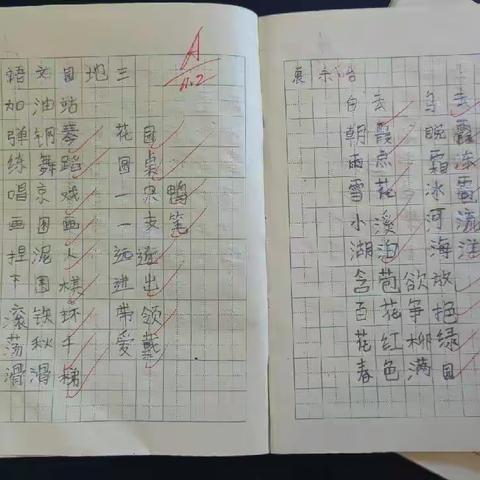 语文园地三
A
11.2
加油站
弹钢琴 花园
练舞蹈 圆桌
唱京戏 一只鸭
画国画 一支笔
捏泥人 远近
下围棋 进出
滚铁环 带领
荡秋千 爱戴
滑滑梯
展示台
白云 乌云
朝霞 晚霞
雨点 霜冻
雪花 冰雹
小溪 河流
湖泊 海洋
含苞欲放
百花争艳
花红柳绿
春色满园